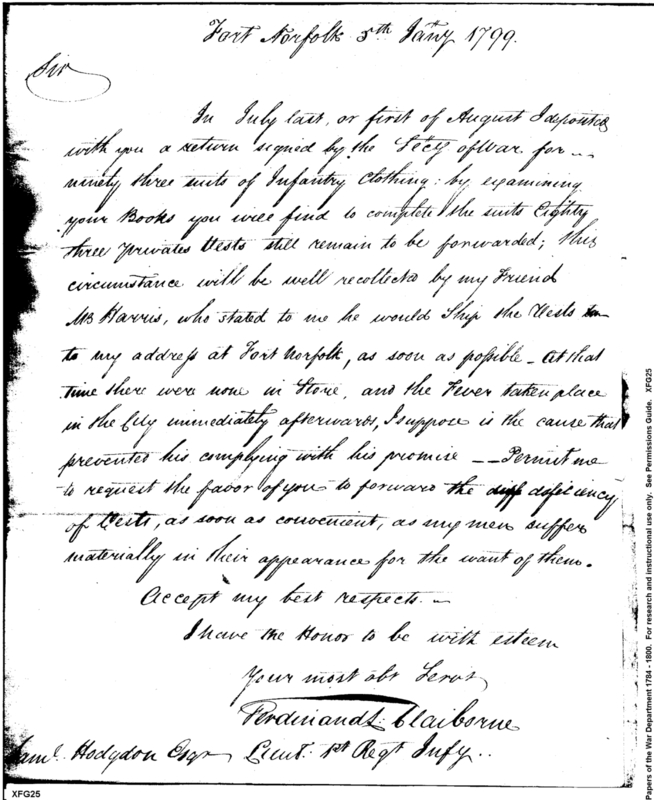 Fort Norfolk 5th Jany 1799.
Sir
In July last, or first of August I deposited
with you a return signed by the Secy of War for
ninety three suits of Infantry Clothing: by examining
your Books you will find to complete the suits Eighty
three privates Vests still remain to be forwarded; this
circumstance will be well recollected by my Friend
Mr Harris, who stated to me he would Ship the Vests
to my address at Fort Norfolk, as soon as possible - at that
time there were none in Store, and the Fever taken place
in the City immediately afterwards, I suppose is the cause that
prevented his complying with his promise -- Permit me
to request the favor of you to forward the deficiency
of Vests, as soon as convenient, as my men suffer
materially in their appearance for the want of them.
Accept my best respects. -
I have the Honor to be with esteem
Your most obt Servt
Ferdinand L. Claiborne
Saml. Hodgdon Esqr Lieut. 1st Regt Infy..
XFG25
Papers of the War Department 1784 - 1800. For research and instructional use only. See Permissions Guide. XFG25